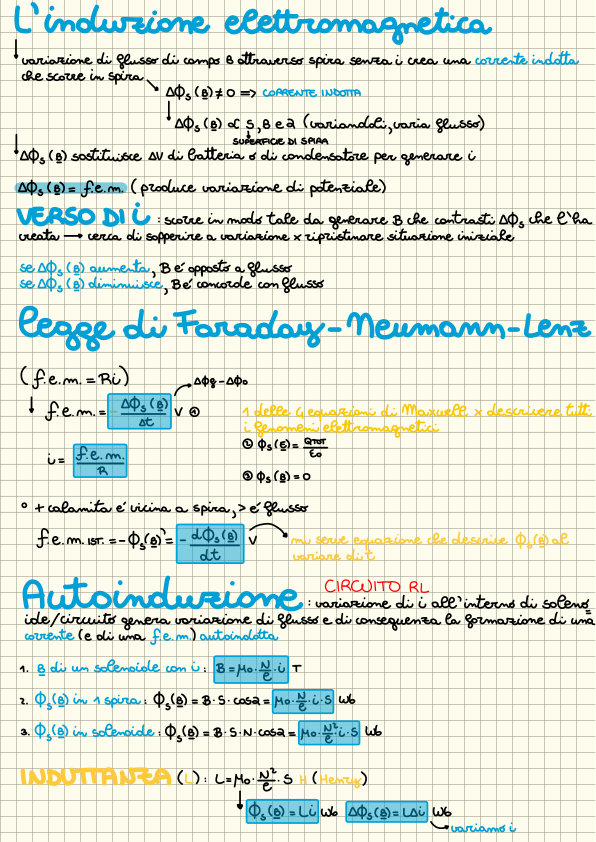 L'induzione elettromagnetica
↓ variazione di flusso di campo B attraverso spira senza i crea una corrente indotta
che scorre in spira
ΔΦs (B) ≠ 0 => CORRENTE INDOTTA
ΔΦs (B) ∝ S, B e α (variandoli, varia flusso)
SUPERFICIE DI SPIRA
↓ ΔΦs (B) sostituisce ΔV di batteria o di condensatore per generare i
ΔΦs (B) = f.e.m. (produce variazione di potenziale)
VERSO DI i : scorre in modo tale da generare B che contrasti ΔΦs che l'ha
creata → cerca di sopperire a variazione x ripristinare situazione iniziale
se ΔΦs (B) aumenta, B é opposto a flusso
se ΔΦs (B) diminuisce, B é concorde con flusso
Legge di Faraday-Neumann-Lenz
(f.e.m. = Ri)
ΔΦB - ΔΦ0
↓ f.e.m. = - ΔΦs (B) / Δt V ④
1 delle 4 equazioni di Maxwell x descrivere tutti
i fenomeni elettromagnetici
① Φs (E) = QTOT / ε0
i = f.e.m. / R
② Φs (B) = 0
° + calamita é vicina a spira, > é flusso
f.e.m. IST. = - Φs(B)' = - dΦs (B) / dt V
mi serve equazione che descrive Φs (B) al
variare di t
CIRCUITO RL
Autoinduzione : variazione di i all'interno di soleno
ide/circuito genera variazione di flusso e di conseguenza la formazione di una
corrente (e di una f.e.m.) autoindotta
1. B di un solenoide con i : B = μ0 · N/ℓ · i T
2. Φs (B) in 1 spira : Φs (B) = B · S · cosα = μ0 · N/ℓ · i · S Wb
3. Φs (B) in solenoide : Φs (B) = B · S · N · cosα = μ0 · N²/ℓ · i · S Wb
INDUTTANZA (L) : L = μ0 · N²/ℓ · S H (Henry)
↓ Φs (B) = Li Wb ΔΦs (B) = LΔi Wb
variamo i